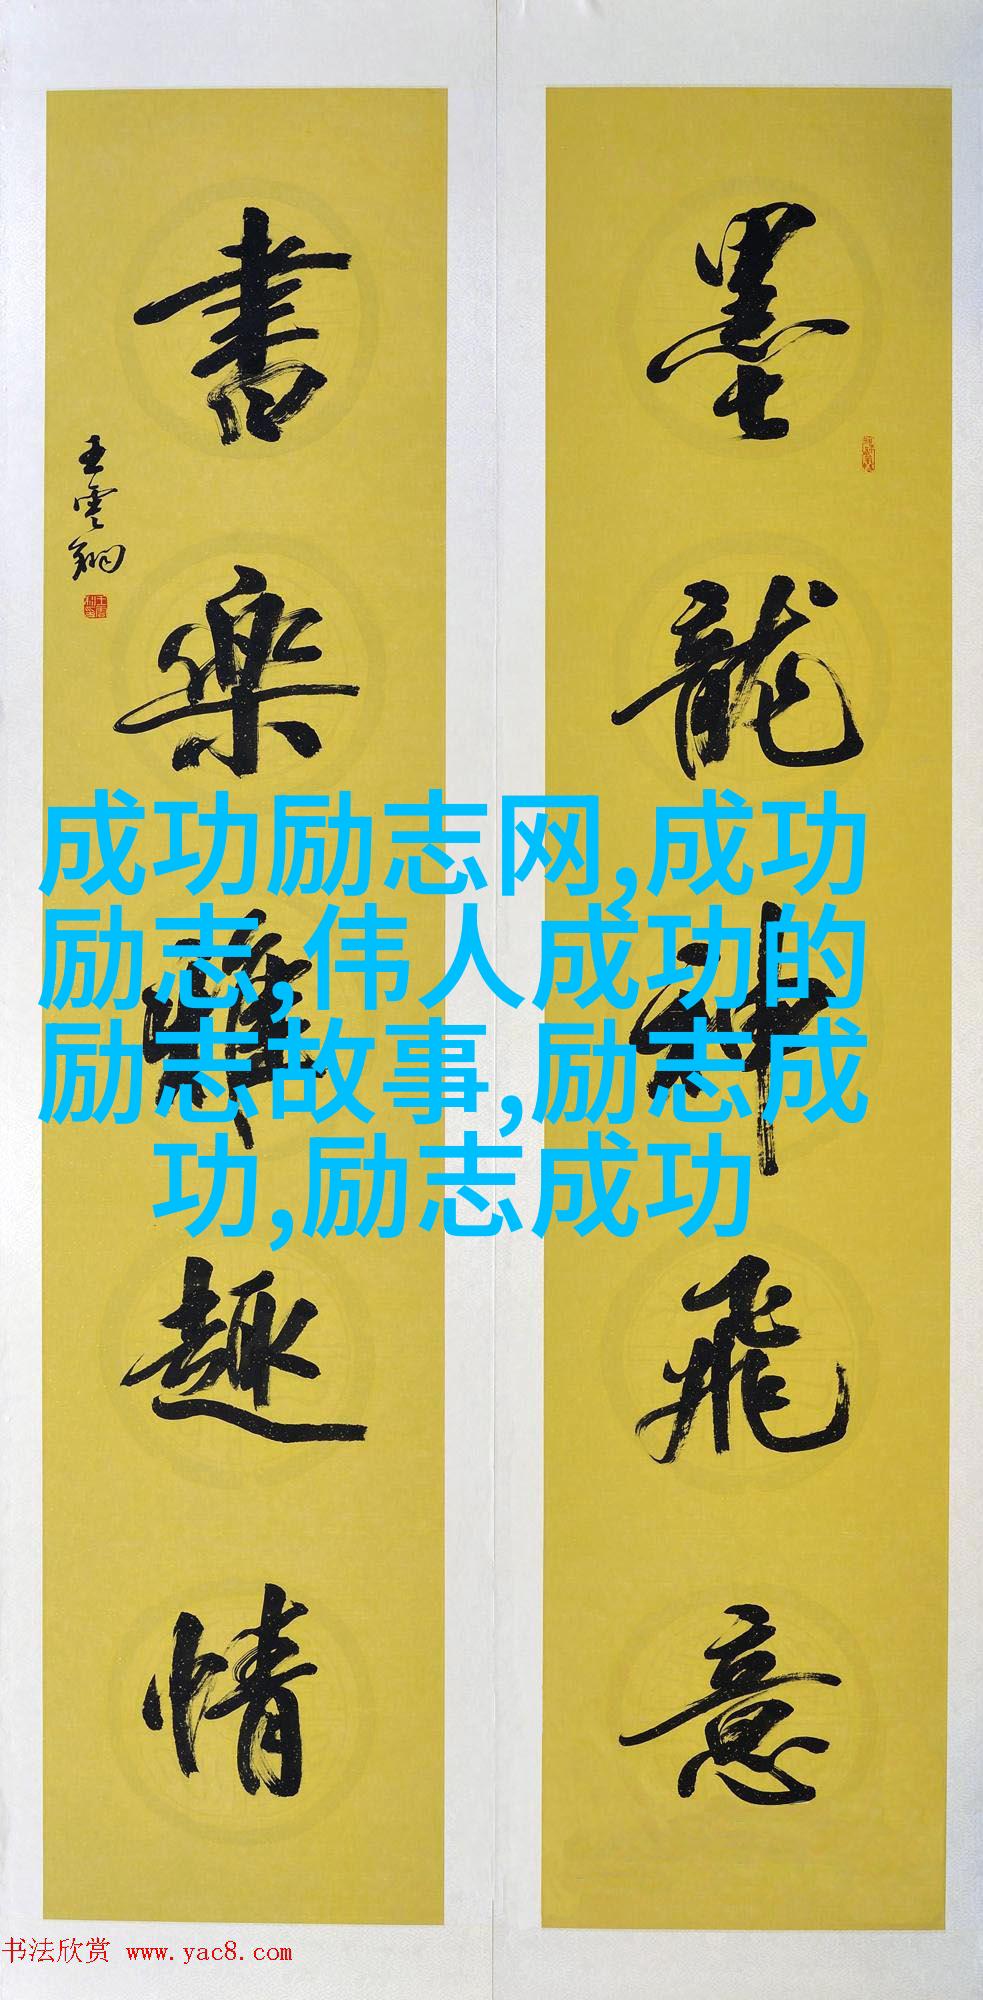 墨龍神飛意
書楽趣情
王雲翔
成功励志网,成功
励志,伟人成功的
励志故事,励志成
功,励志成功
书法欣赏 www.yac8.com